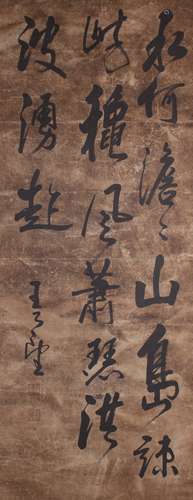 水何澹〻山島竦
峙穐風蕭瑟洪
波湧起
王